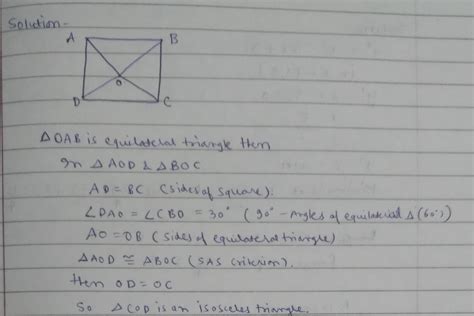 Solution-
A B
O
D C
△OAB is equilateral triangle then
In △AOD & △BOC
AD = BC (sides of square).
∠DAO = ∠CBO = 30° (90° - Angles of equilateral △(60°))
AO = OB (sides of equilateral triangle)
△AOD ≅ △BOC (SAS criterion).
then OD = OC
So △COD is an isosceles triangle.